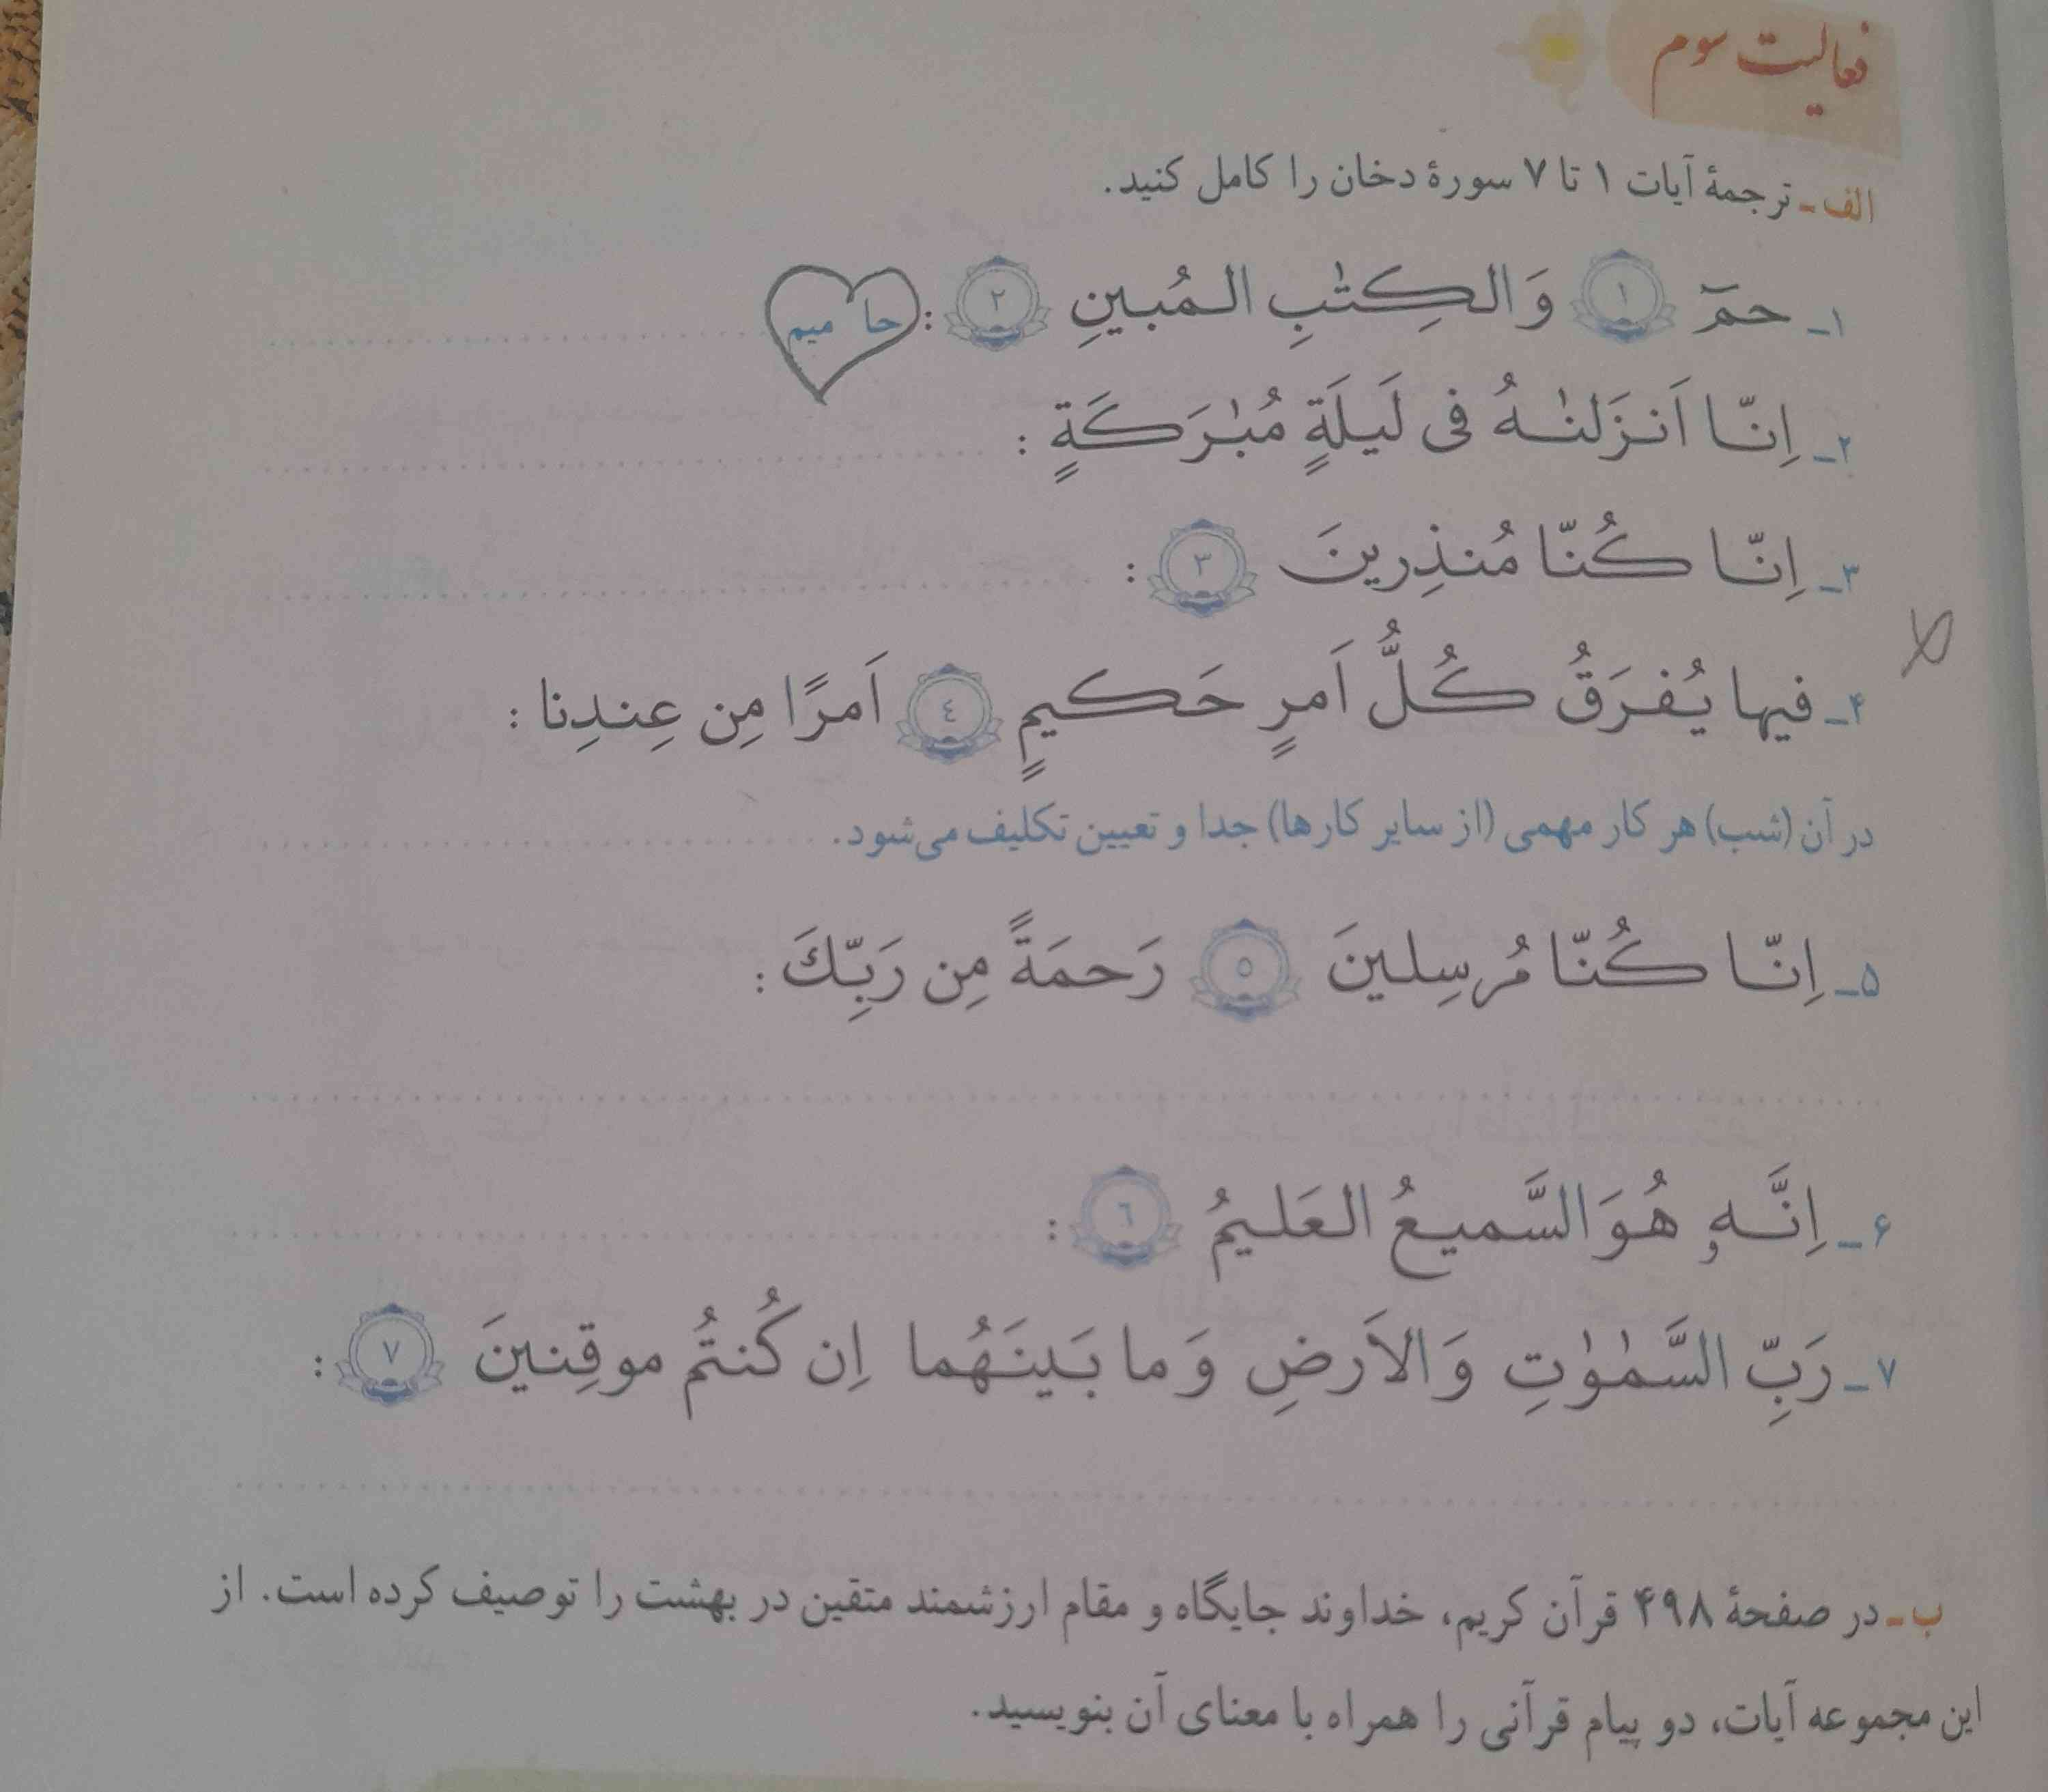 فعالیت سوم
الف ـ ترجمهٔ آیات ۱ تا ۷ سورهٔ دخان را کامل کنید.
۱ـ حمٓ ﴿١﴾ وَ الكِتٰبِ المُبينِ ﴿٢﴾ : حا میم
۲ـ اِنّا اَنزَلنٰهُ فى لَيلَةٍ مُبٰرَكَةٍ :
۳ـ اِنّا كُنّا مُنذِرينَ ﴿٣﴾ :
۴ـ فيها يُفرَقُ كُلُّ اَمرٍ حَكيمٍ ﴿٤﴾ اَمرًا مِن عِندِنا :
در آن (شب) هر کار مهمی (از سایر کارها) جدا و تعیین تکلیف می‌شود.
۵ـ اِنّا كُنّا مُرسِلينَ ﴿٥﴾ رَحمَةً مِن رَبِّكَ :
۶ـ اِنَّهٗ هُوَ السَّميعُ العَليمُ ﴿٦﴾ :
۷ـ رَبِّ السَّمٰوٰتِ وَ الاَرضِ وَ ما بَينَهُما اِن كُنتُم موقِنينَ ﴿٧﴾ :
ب ـ در صفحهٔ ۴۹۸ قرآن کریم، خداوند جایگاه و مقام ارزشمند متقین در بهشت را توصیف کرده است. از
این مجموعه آیات، دو پیام قرآنی را همراه با معنای آن بنویسید.